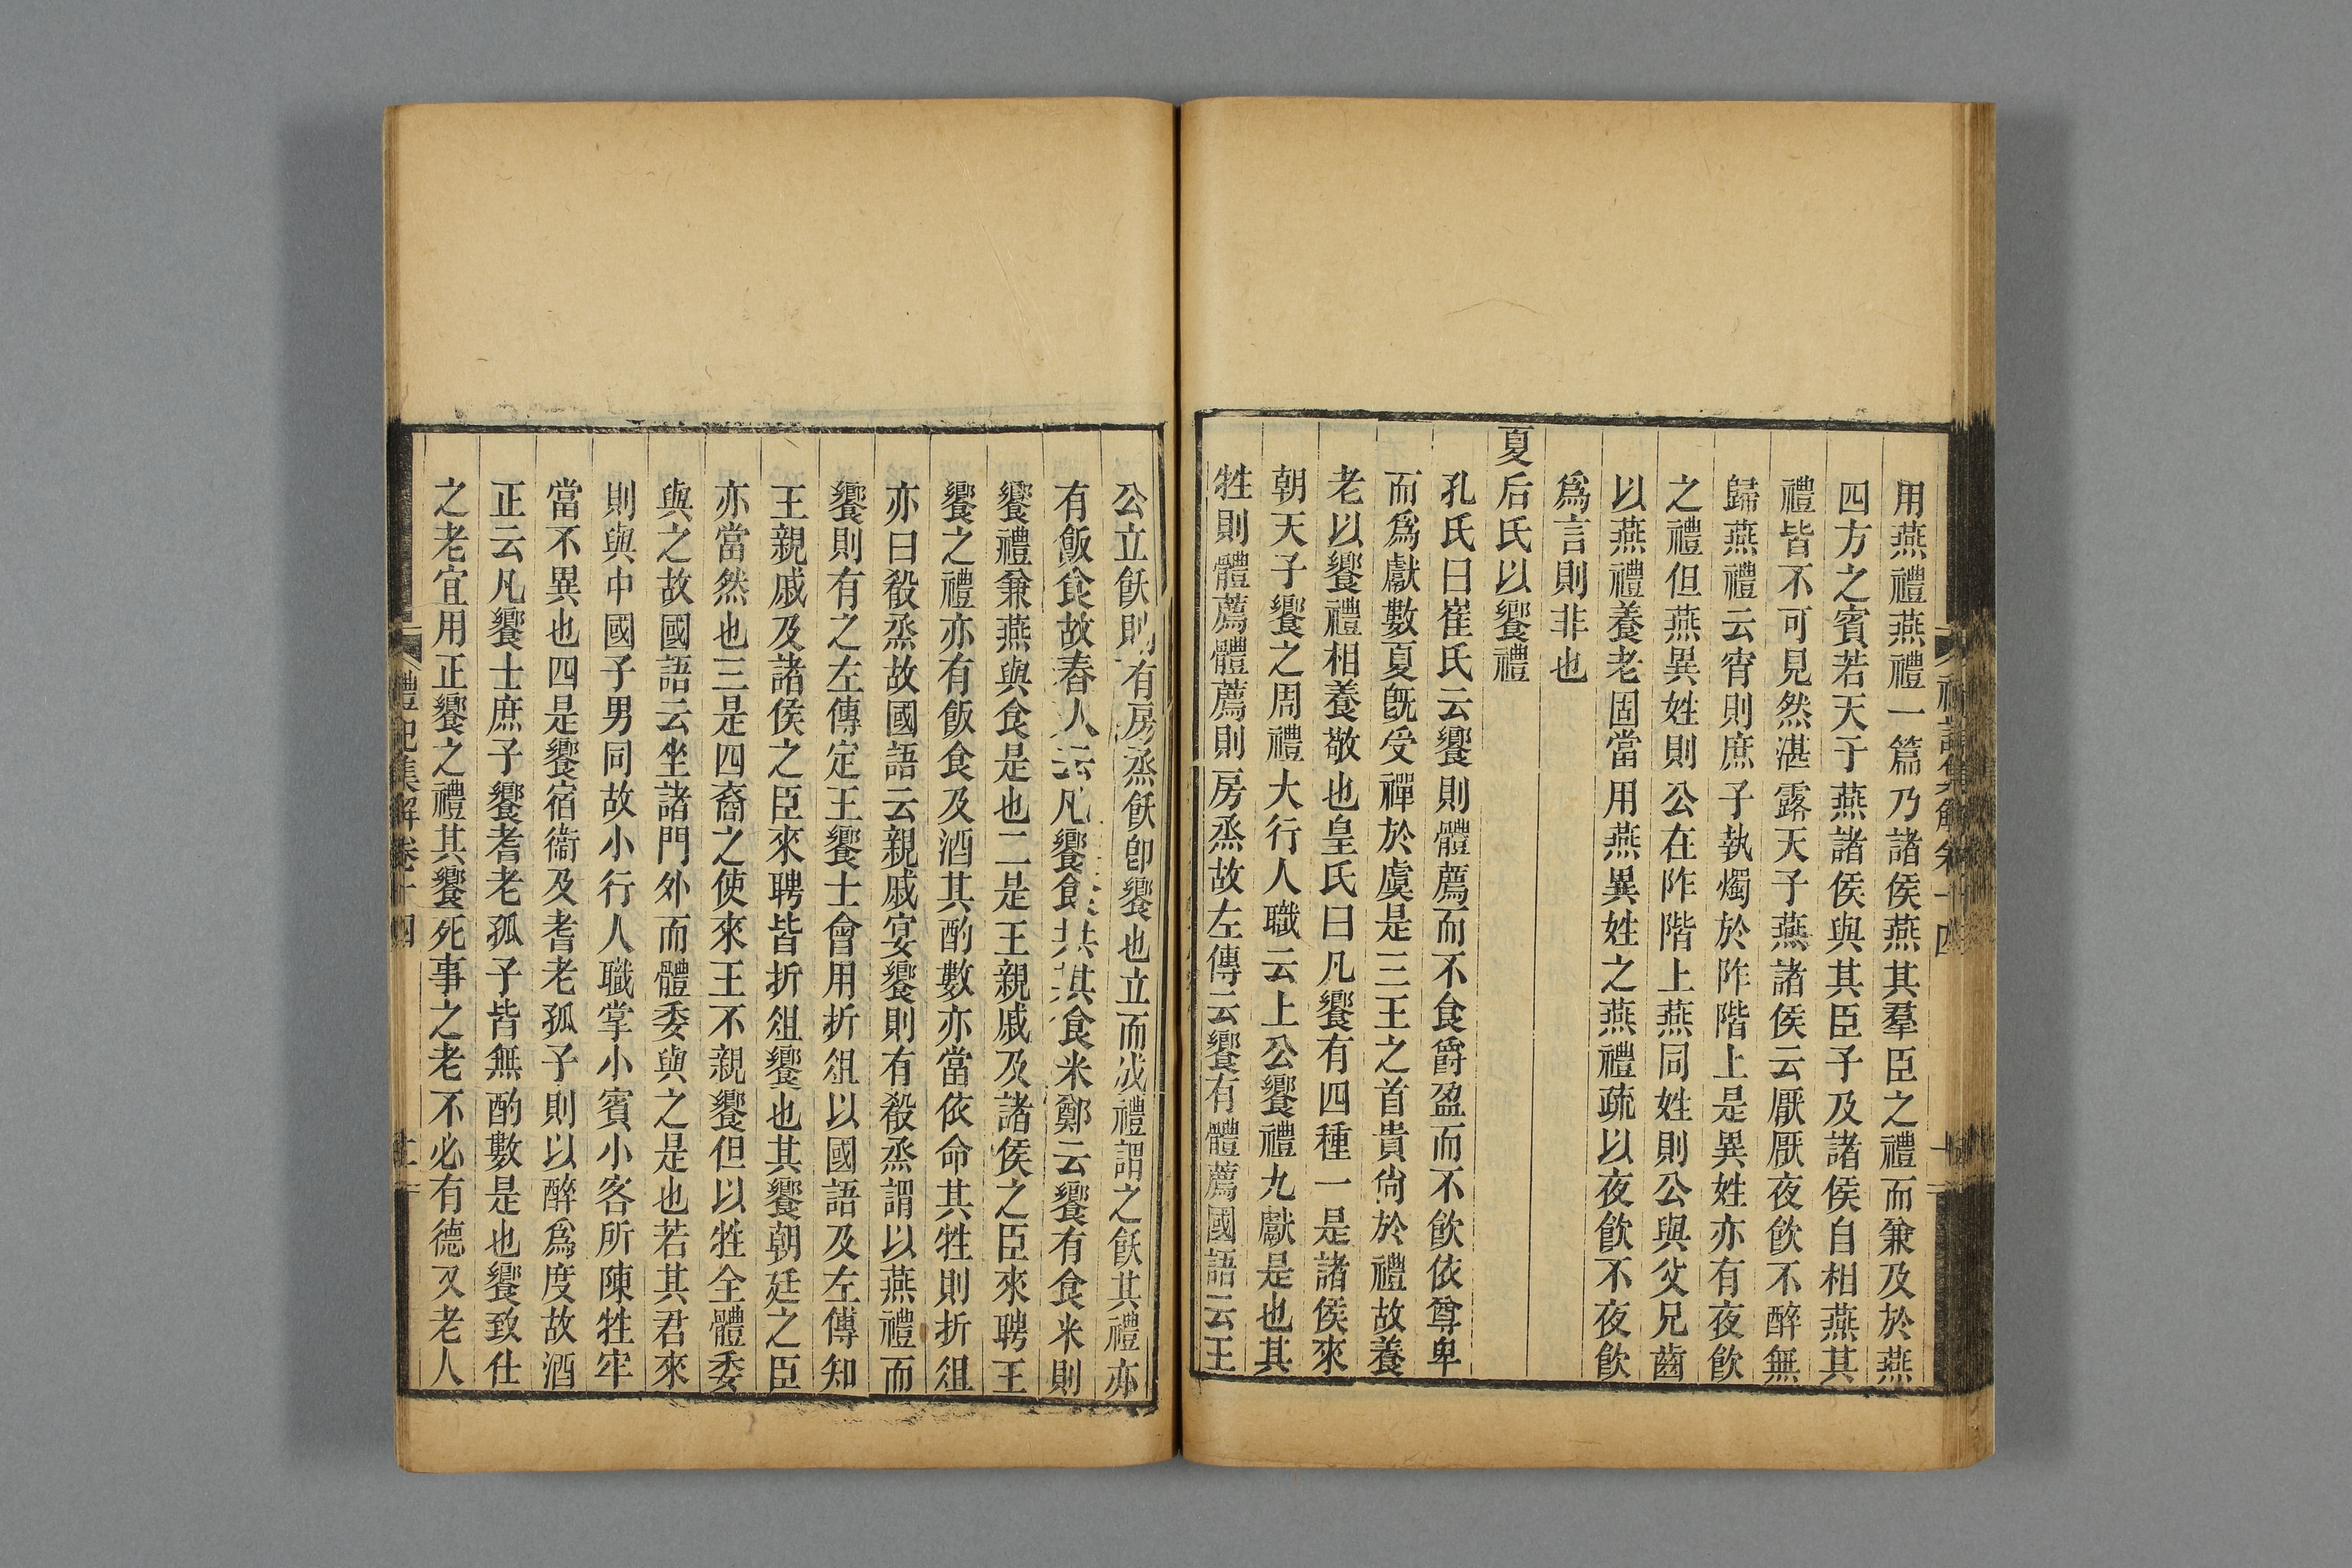 用燕禮燕禮一篇乃諸侯燕其羣臣之禮而兼及於燕
四方之賓若天子燕諸侯與其臣子及諸侯自相燕其
禮皆不可見然湛露天子燕諸侯云厭厭夜飲不醉無
歸燕禮云宵則庶子執燭於阼階上是異姓亦有夜飲
之禮但燕異姓則公在阼階上燕同姓則公與父兄齒
以燕禮養老固當用燕異姓之燕禮疏以夜飲不夜飲
爲言則非也
夏后氏以饗禮
孔氏曰崔氏云饗則體薦而不食爵盈而不飲依尊卑
而爲獻數夏旣受禪於虞是三王之首貴尙於禮故養
老以饗禮相養敬也皇氏曰凡饗有四種一是諸侯來
朝天子饗之周禮大行人職云上公饗禮九獻是也其
牲則體薦體薦則房烝故左傳云饗有體薦國語云王
公立飫則有房烝飫卽饗也立而成禮謂之飫其禮亦
有飯食故舂人云凡饗食共其食米鄭云饗有食米則
饗禮兼燕與食是也二是王親戚及諸侯之臣來聘王
饗之禮亦有飯食及酒其酌數亦當依命其牲則折俎
亦曰殽烝故國語云親戚宴饗則有殽烝謂以燕禮而
饗則有之左傳定王饗士會用折俎以國語及左傳知
王親戚及諸侯之臣來聘皆折俎饗也其饗朝廷之臣
亦當然也三是四裔之使來王不親饗但以牲全體委
與之故國語云坐諸門外而體委與之是也若其君來
則與中國子男同故小行人職掌小賓小客所陳牲牢
當不異也四是饗宿衞及耆老孤子則以醉爲度故酒
正云凡饗士庶子饗耆老孤子皆無酌數是也饗致仕
之老宜用正饗之禮其饗死事之老不必有德又老人
禮記集解卷十四